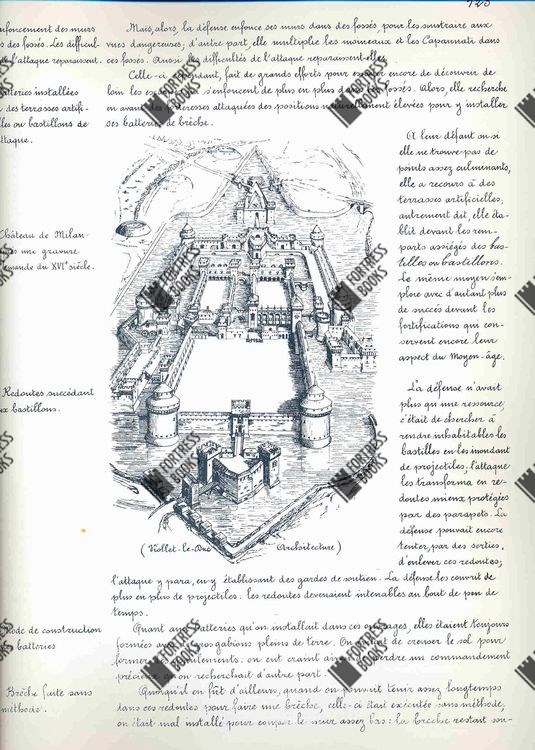 123
Mais, alors, la défense enfonce ses murs dans des fossés, pour les soustraire aux
vues dangereuses; d'autre part, elle multiplie les moineaux et les Caponnati dans
ces fossés. Aussi les difficultés de l'attaque reparaissent-elles.
Celle-ci cependant, fait de grands efforts pour encore de découvrir de
loin les s'enfoncent de plus en plus dans les fossés. Alors, elle recherche
en avant des forteresses attaquées des positions naturellement élevées pour y installer
ses batteries de brèche.
enfoncement des murs
s des fossés. Les difficul-
l'attaque reparaissent.
batteries installées
des terrasses artifi-
lles ou bastillons de
ttaque.
A leur défaut ou si
elle ne trouve pas de
points assez culminants,
elle a recours à des
terrasses artificielles,
autrement dit, elle éta-
blit devant les rem-
parts assiégés des bas-
tilles ou bastillons.
Le même moyen s'em-
ploie avec d'autant plus
de succès devant les
fortifications qui con-
servent encore leur
aspect du Moyen-âge.
Château de Milan
une gravure
lemande du XVIe siècle.
Redoutes succédant
ux bastillons.
La défense n'avait
plus qu'une ressource
c'était de chercher à
rendre inhabitables les
bastilles en les inondant
de projectiles, l'attaque
les transforma en re-
doutes mieux protégées
par des parapets. La
défense pouvait encore
tenter, par des sorties,
d'enlever ces redoutes;
(Viollet-le-Duc Architecture)
l'attaque y para, en y établissant des gardes de soutien. La défense les couvrit de
plus en plus de projectiles: les redoutes devenaient intenables au bout de peu de
temps.
Mode de construction
batteries
Quant aux batteries qu'on installait dans ces ouvrages, elles étaient toujours
formées avec gros gabions pleins de terre. On de creuser le sol pour
former les épaulements: on eut craint ainsi de perdre un commandement
précieux qu'on recherchait d'autre part.
Brèche faite sans
méthode.
Quoiqu'il en fût d'ailleurs, quand on pouvait tenir assez longtemps
dans ces redoutes pour faire une brèche, celle-ci était exécutée sans méthode;
on était mal installé pour couper le mur assez bas: la brèche restait sou-
FORTRESS
BOOKS